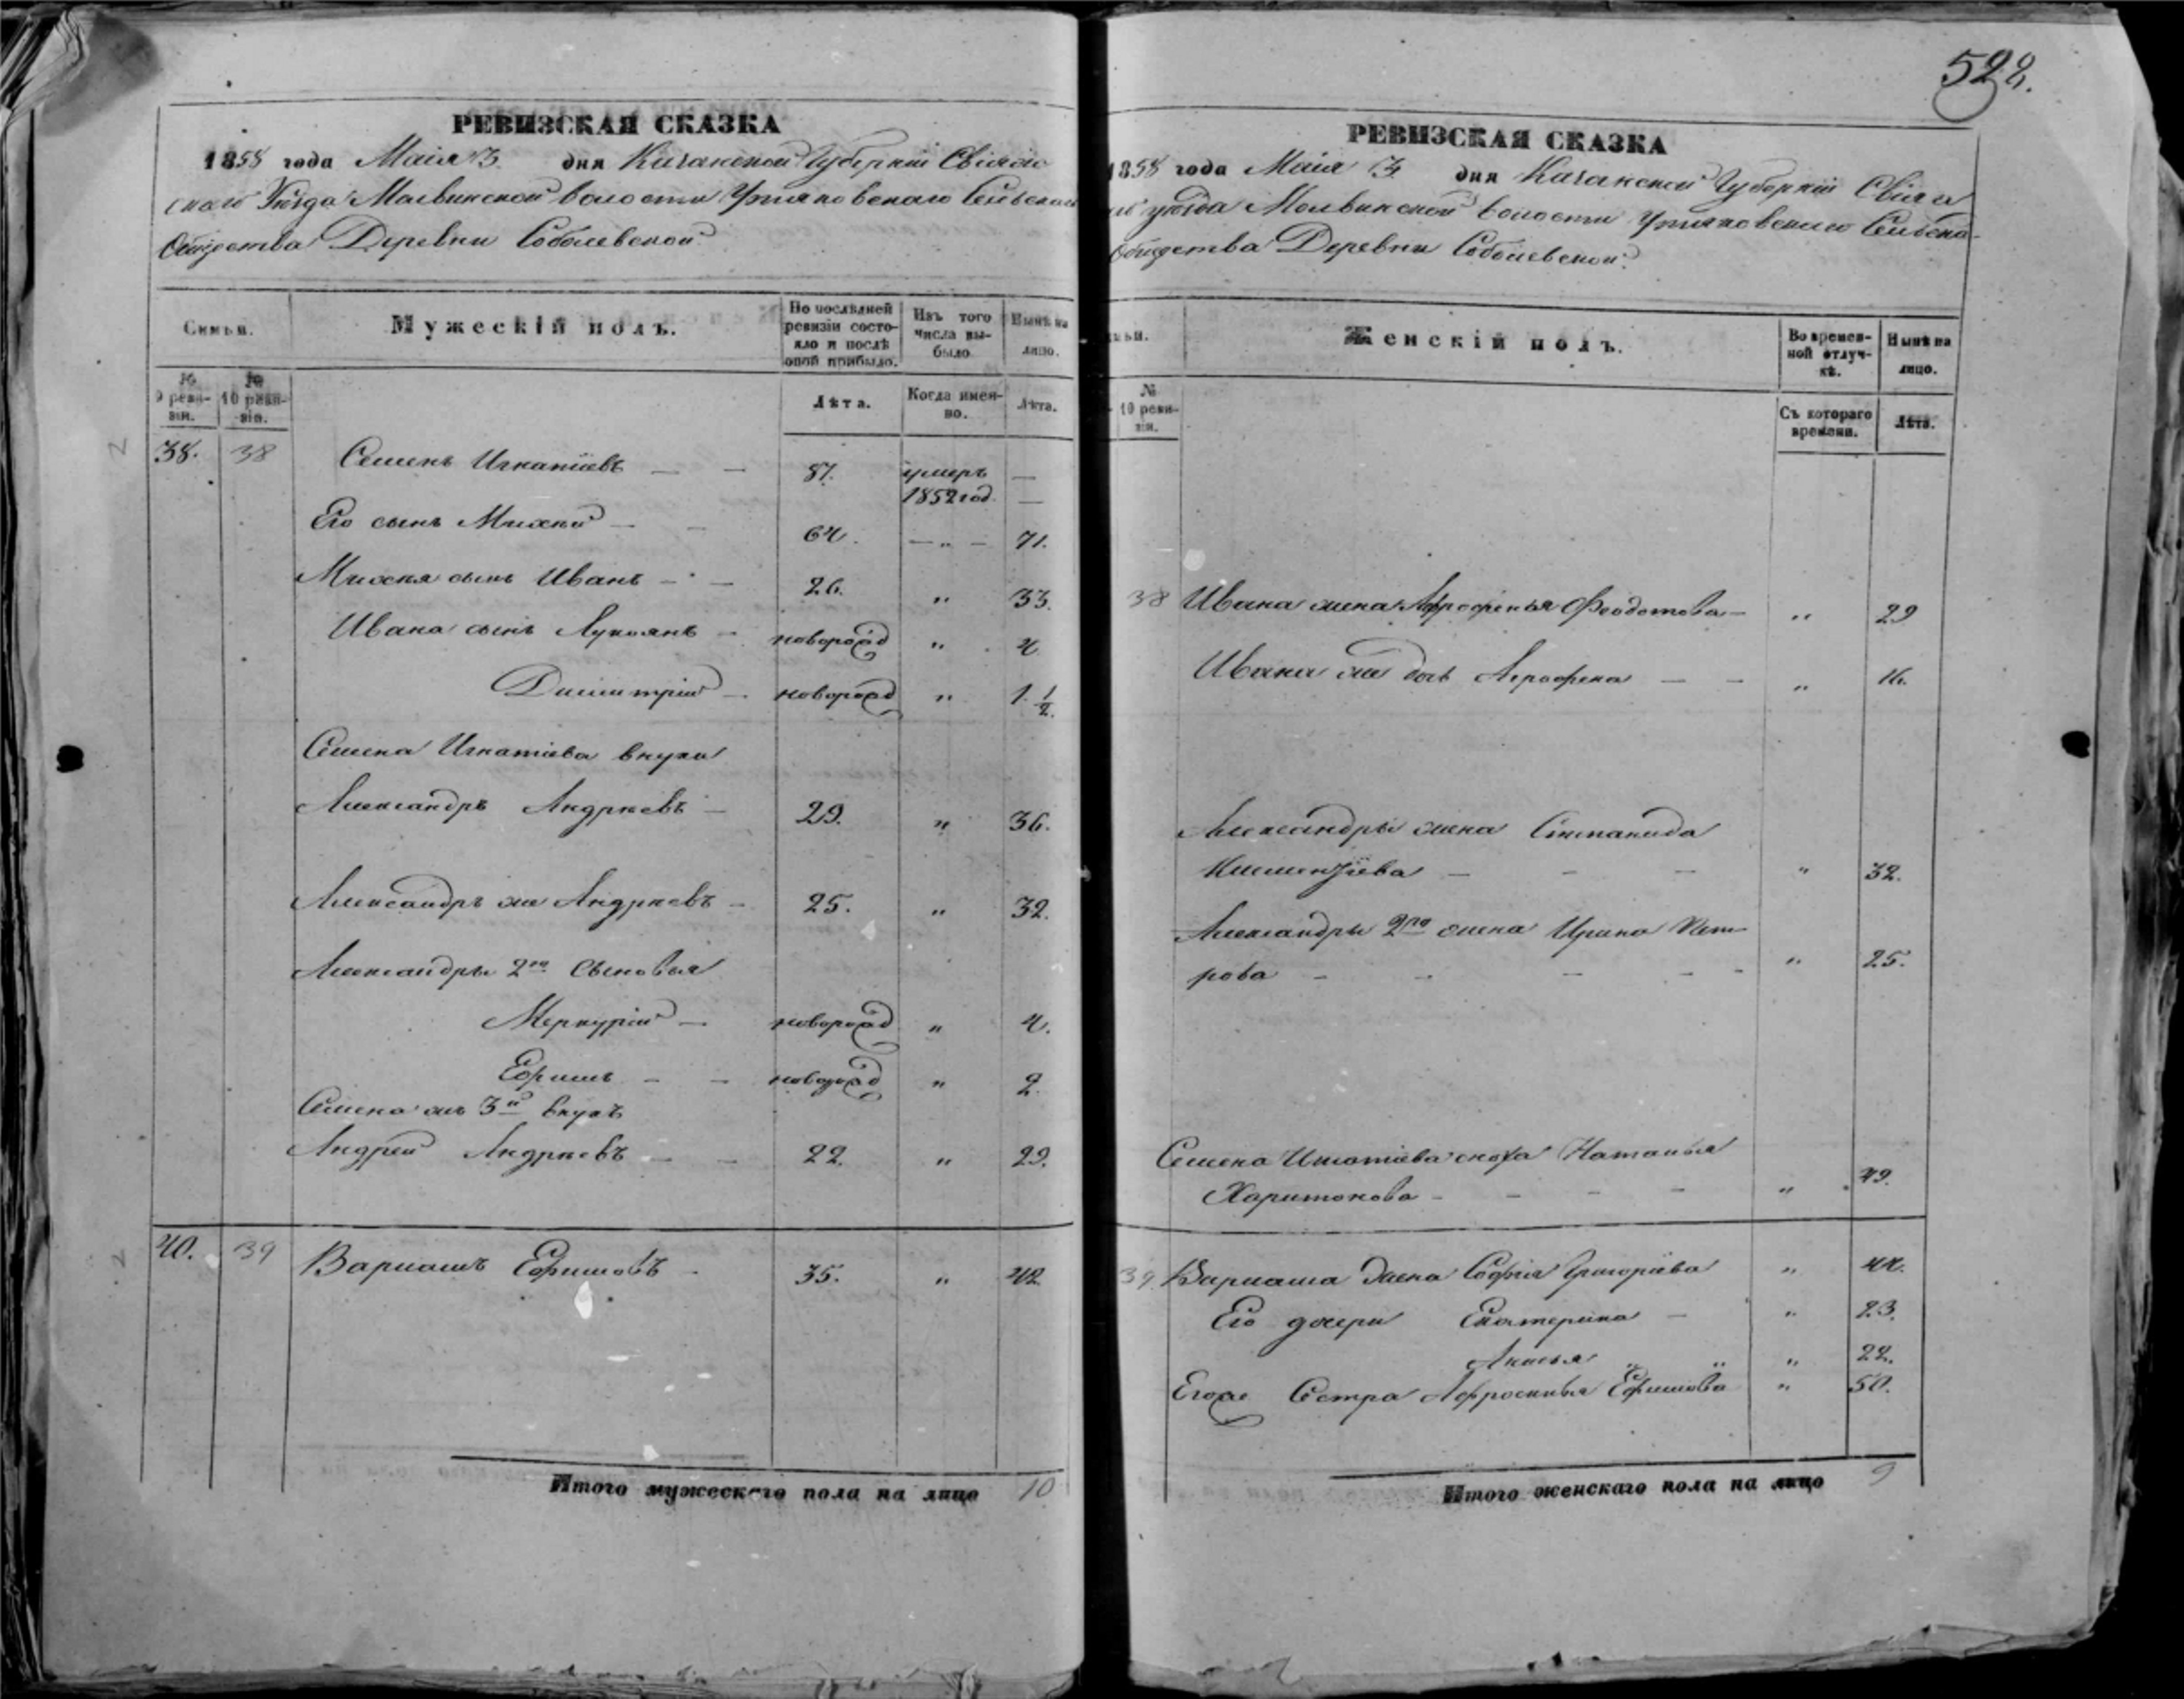 528.
РЕВИЗСКАЯ СКАЗКА
1858 года Маія 3 дня Казанской Губерніи Свіяж
скаго Уѣзда Молвинской волости Утяковскаго Сельскаго
Общества Деревни Соболевской
Семьи.
Мужескій полъ.
По послѣдней ревизіи состояло и послѣ оной прибыло.
Изъ того числа выбыло
Нынѣ на лицо.
№ 9 ревизіи.
№ 10 ревизіи.
Лѣта.
Когда именно.
Лѣта.
38. 38 Семенъ Игнатіевъ — — 87. умеръ —
1852 год. —
Его сынъ Михей — — 64. — „ — 71.
Михея сынъ Иванъ — — 26. „ 33.
Ивана сынъ Лукоянъ — новорожд „ 4
Димитрій — новорожд „ 1. 1/2.
Семена Игнатіева внуки
Александръ Андреевъ — 29. „ 36.
Александръ же Андреевъ — 25. „ 32.
Александры 2го Сыновья
Меркурій — новорожд „ 4.
Ефимъ — — новорожд „ 2.
Семена же 3й внукъ
Андрей Андреевъ — — 22. „ 29.
40. 39 Варламъ Ефимовъ - 35. „ 42
Итого мужескаго пола на лицо 10
РЕВИЗСКАЯ СКАЗКА
1858 года Маія 3 дня Казанской Губерніи Свіяж
уѣзда Молвинской волости Утяковскаго Сельска
Общества Деревни Соболевской.
Женскій полъ.
Во временной отлучкѣ.
Нынѣ на лицо.
№
10 ревизіи.
Съ котораго времени.
Лѣта.
38 Ивана жена Афросенья Феодотова — „ 29
Ивана же дочь Аграфена — — „ 16.
Александры жена Степанида
Климентіева — — — „ 32.
Александры 2го жена Ирина Пет
рова — — — — - „ 25.
Семена Игнатіева сноха Наталья
Харитонова - - - - „ 49.
39. Варлама жена Софія Григоріева „ 44.
Его дочери Екатерина — „ 23.
Анисья „ „ „ 22.
Егоже Сестра Афросинья Ефимова „ 50.
Итого женскаго пола на лицо 9